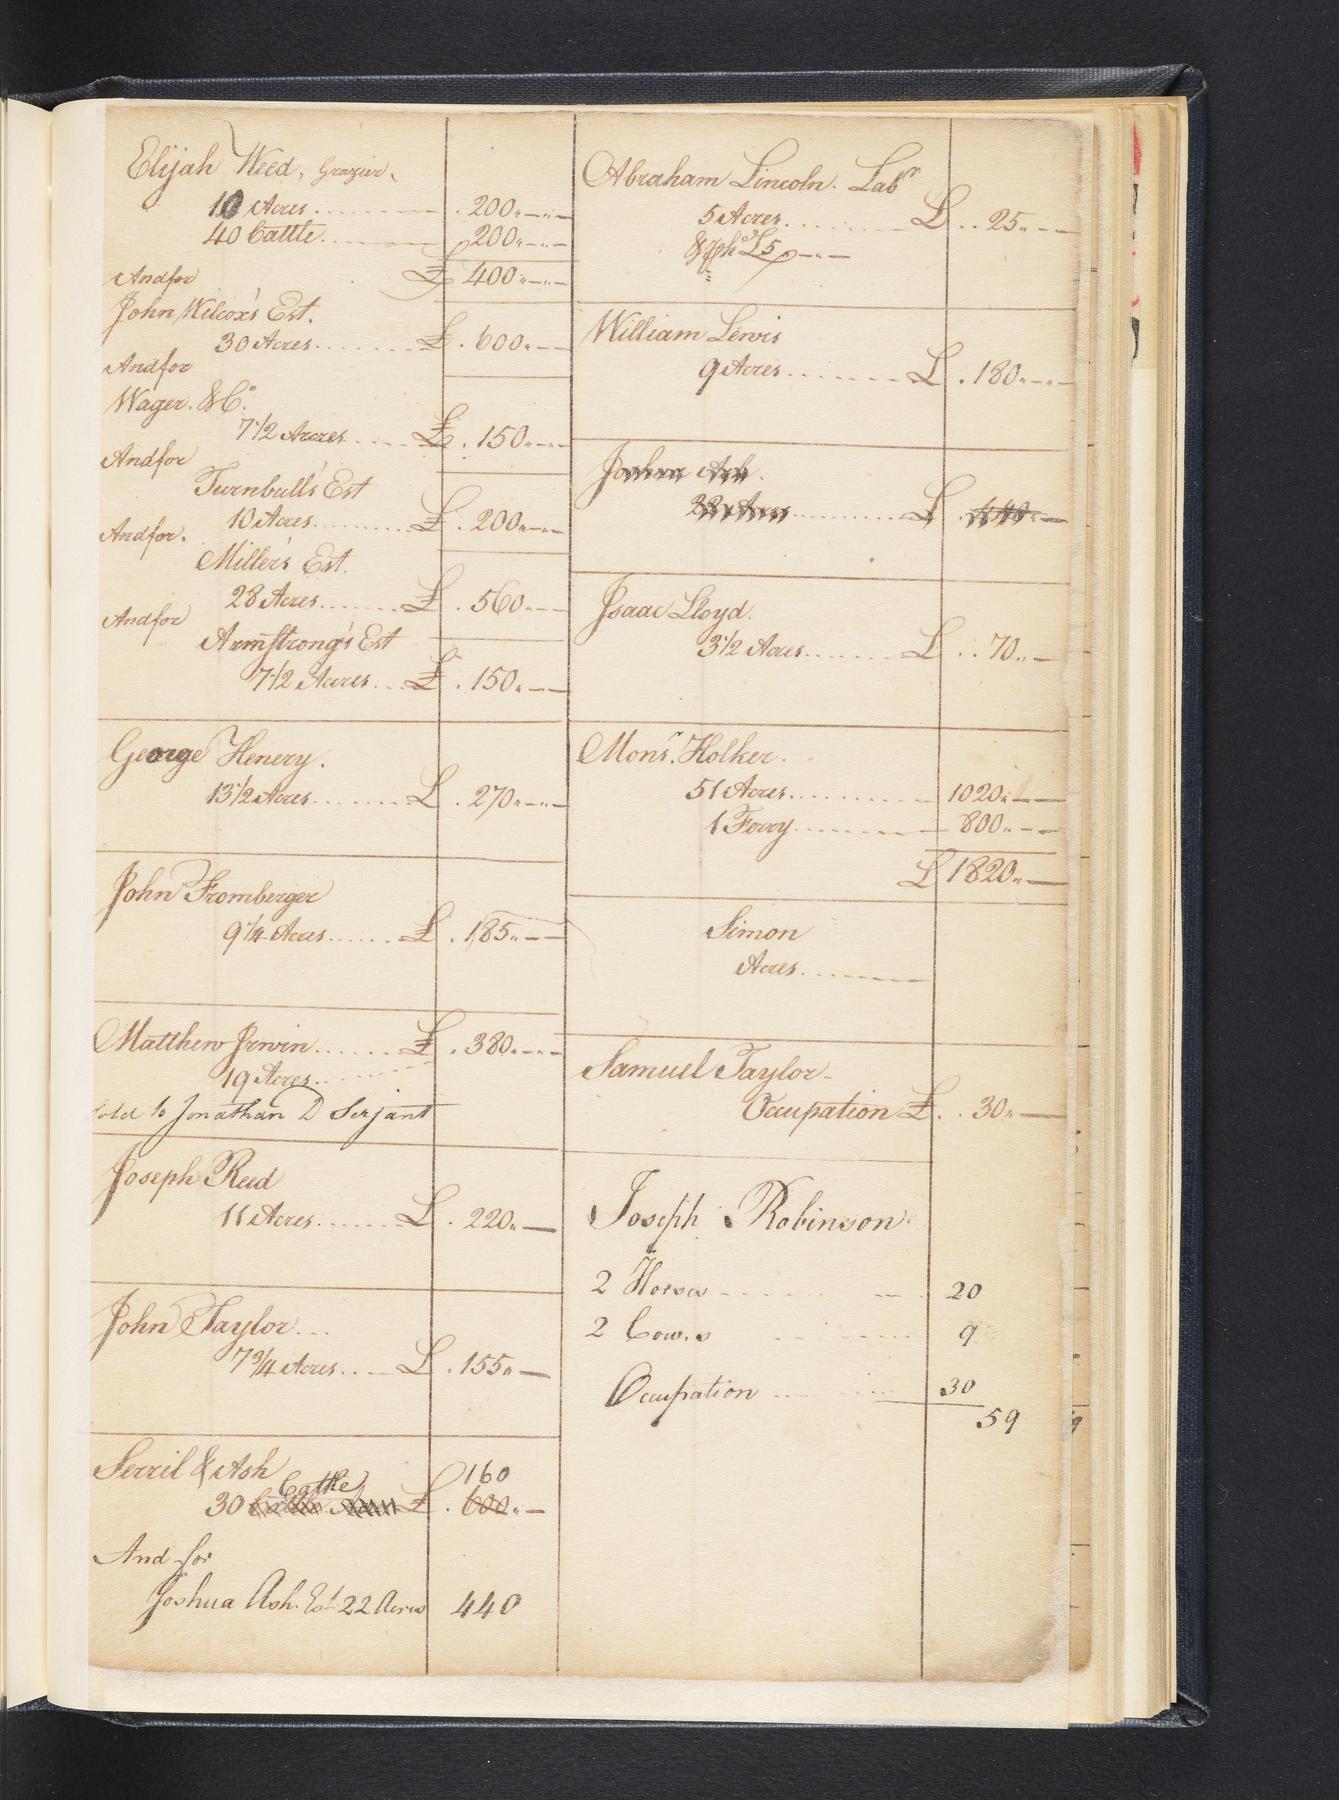 Elijah Weed, Grazier,
10 Acres ........ 200 " — " —
40 Cattle ........ 200 " — " —
£ 400 " — " —
Andfor
John Wilcox's Est.
30 Acres ........ £ . 600 " — —
Andfor
Wager. & Co.
7 1/2 Acres .... £ . 150 " — " —
Andfor
Turnbull's Est
10 Acres ........ £ . 200 " — " —
Andfor.
Miller's Est.
28 Acres ....... £ . 560 " — —
Andfor
Armstrong's Est
7 1/2 Acres ... £ . 150 " — —
George Henery.
13 1/2 Acres ....... £ . 270 " — " —
John Fromberger
9 1/4 Acres ...... £ . 185 " — —
Matthew Irwin ...... £ . 380 " — " —
19 Acres ........
sold to Jonathan D Serjant
Joseph Reed
11 Acres ...... £ . 220 " —
John Taylor ...
7 3/4 Acres .... £ . 155 " —
Serril & Ash 160
Cattle
30 Cattle Acres £ . 600 " —
And for
Joshua Ash. Est 22 Acres 440
Abraham Lincoln. Labr
5 Acres ........ £ .. 25 " — —
William Lewis
9 Acres ........ £ . 180 " — " —
Joshua Ash.
22 Acres ........ £ . 440 " —
Isaac Lloyd.
3 1/2 Acres ....... £ .. 70 " —
Monsr. Holker.
51 Acres ........ 1020 " — —
1 Ferry ........ 800 " — —
£ 1820 " —
Simon
Acres ........
Samuel Taylor -
Occupation £ . . 30 " —
Joseph Robinson
2 Horses ........ 20
2 Cows ........ 9
Occupation ........ 30
59